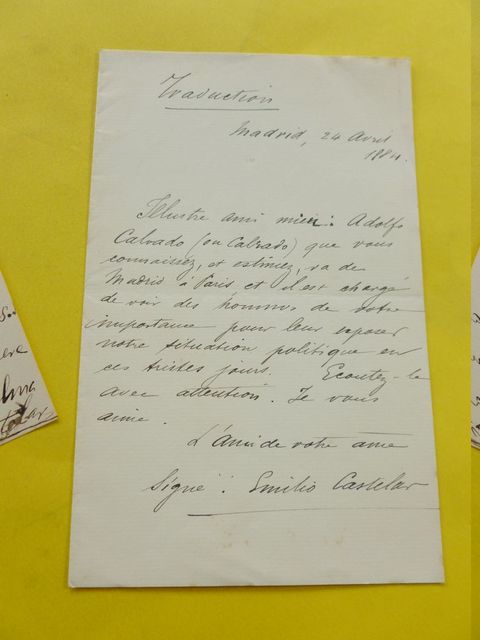 Traduction
Madrid, 24 Avril
1884.
Illustre ami mien: Adolfo
Calvado (ou Calzado) que vous
connaissez, et estimez, va de
Madrid à Paris et il est chargé
de voir des hommes de votre
importance pour leur exposer
notre situation politique en
ces tristes jours. Ecoutez-le
avec attention. Je vous
aime.
L'Ami de votre âme
Signé: Emilio Castelar
S..
ere
lma
telar